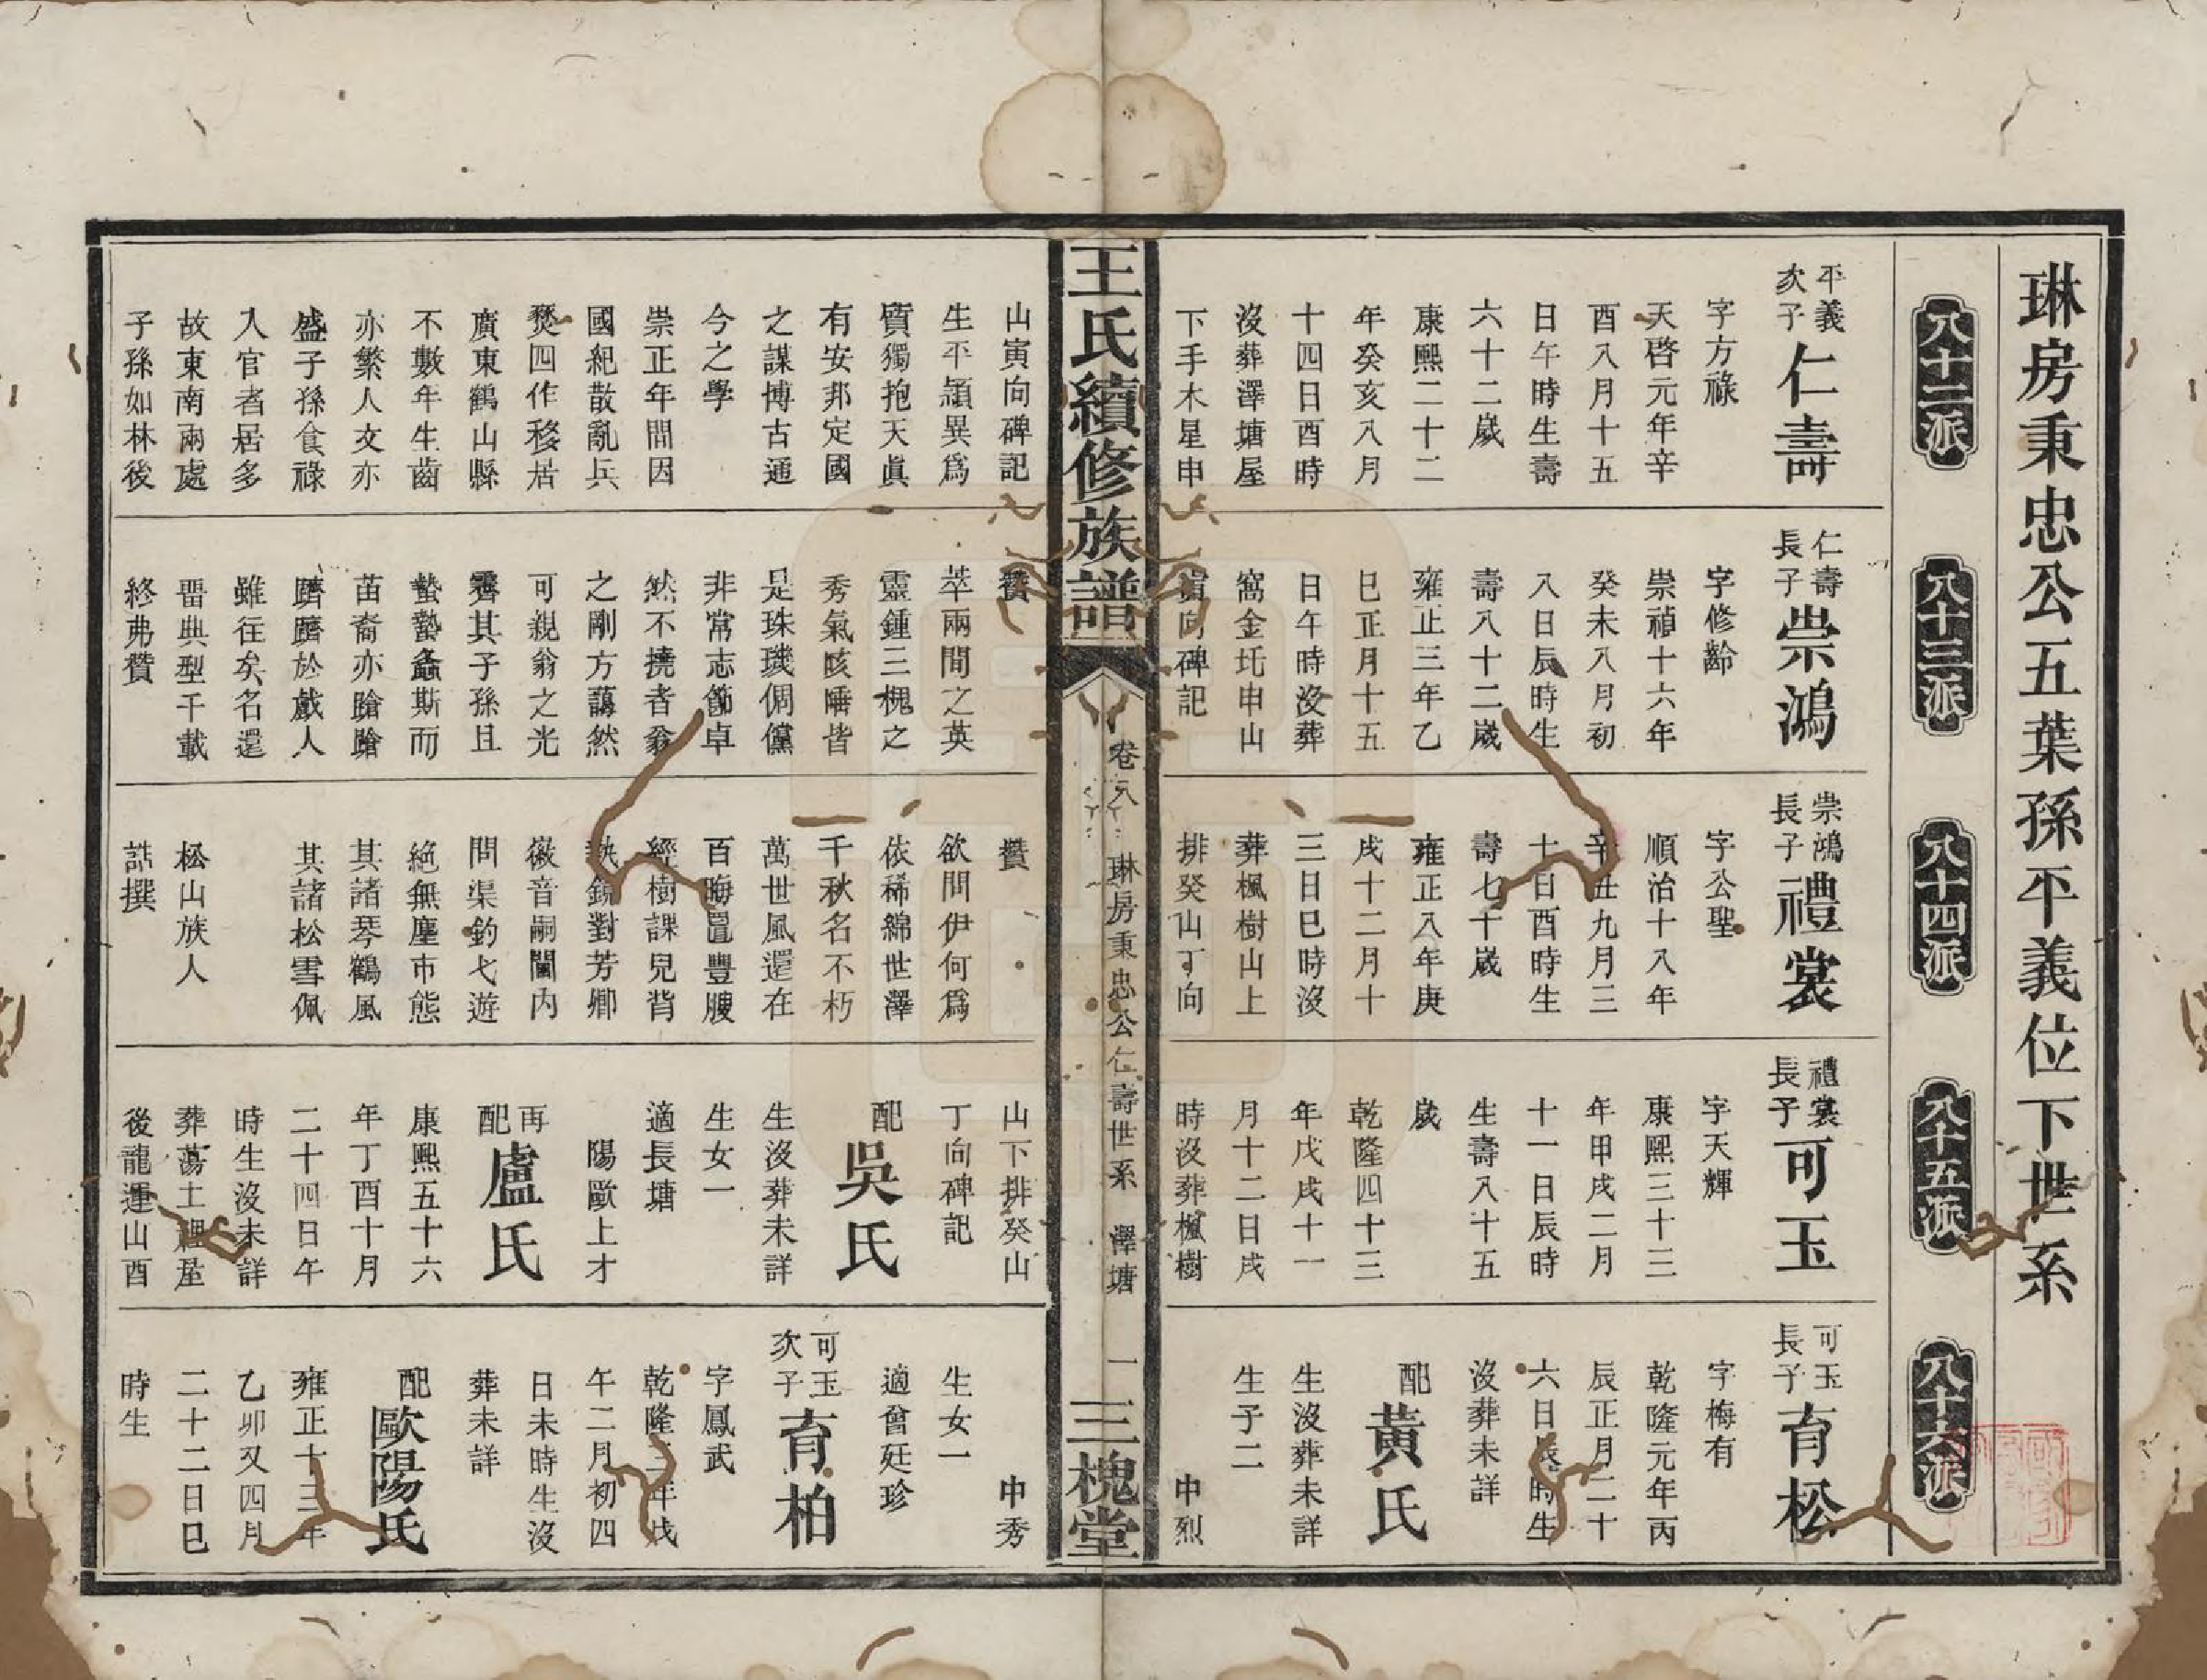 琳房秉忠公五葉孫平義位下世系
八十二派
八十三派
八十四派
八十五派
八十六派
平義次子仁壽
字方祿
天啓元年辛
酉八月十五
日午時生壽
六十二歲
康熙二十二
年癸亥八月
十四日酉時
沒葬澤塘屋
下手木星申
仁壽長子崇鴻
字修齡
崇禎十六年
癸未八月初
八日辰時生
壽八十二歲
雍正三年乙
巳正月十五
日午時沒葬
窩金圫申山
寅向碑記
崇鴻長子禮裳
字公聖
順治十八年
辛丑九月三
十日酉時生
壽七十歲
雍正八年庚
戌十二月十
三日巳時沒
葬楓樹山上
排癸山丁向
禮裳長子可玉
字天輝
康熙三十三
年甲戌二月
十一日辰時
生壽八十五
歲
乾隆四十三
年戊戌十一
月十二日戌
時沒葬楓樹
可玉長子育松
字梅有
乾隆元年丙
辰正月二十
六日辰時生
沒葬未詳
配黃氏
生沒葬未詳
生子二
中烈
王氏續修族譜
卷八 琳房秉忠公仁壽世系 澤塘 一
三槐堂
山寅向碑記
生平穎異爲
質獨抱天眞
有安邦定國
之謀博古通
今之學
崇正年間因
國紀散亂兵
燹四作移居
廣東鶴山縣
不數年生齒
亦繁人文亦
盛子孫食祿
入官者居多
故東南兩處
子孫如林後
贊
萃兩間之英
靈鍾三槐之
秀氣咳唾皆
是珠璣倜儻
非常志節卓
然不撓者翁
之剛方藹然
可親翁之光
霽其子孫且
蟄蟄螽斯而
苗裔亦蹌蹌
躋躋於戲人
雖往矣名還
畱典型千載
終弗贊
贊
欲問伊何爲
依稀綿世澤
千秋名不朽
萬世風還在
百晦畱豐腴
經樹課兒背
執鏡對芳卿
徽音嗣閫內
問渠釣弋遊
絕無塵市態
其諸琴鶴風
其諸松雪佩
松山族人
誥撰
山下排癸山
丁向碑記
配吳氏
生沒葬未詳
生女一
適長塘
陽歐上才
再配盧氏
康熙五十六
年丁酉十月
二十四日午
時生沒未詳
葬蕩土裡屋
後龍運山酉
中秀
生女一
適曾廷珍
可玉次子育柏
字鳳武
乾隆三年戊
午二月初四
日未時生沒
葬未詳
配歐陽氏
雍正十三年
乙卯又四月
二十二日巳
時生